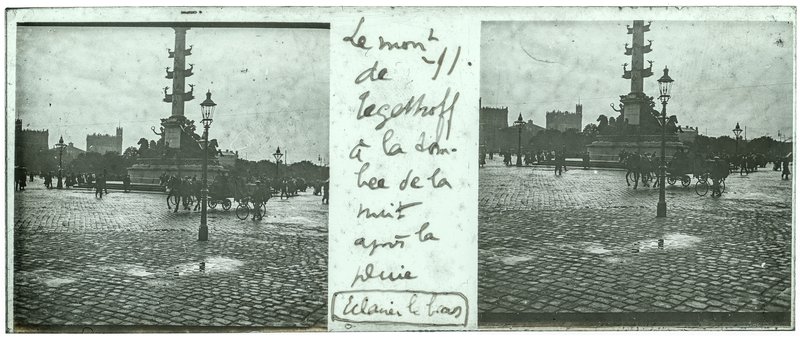 Le mont
de 11.
Tegethoff
à la tom-
bée de la
nuit
après la
pluie
Eclairer le bas